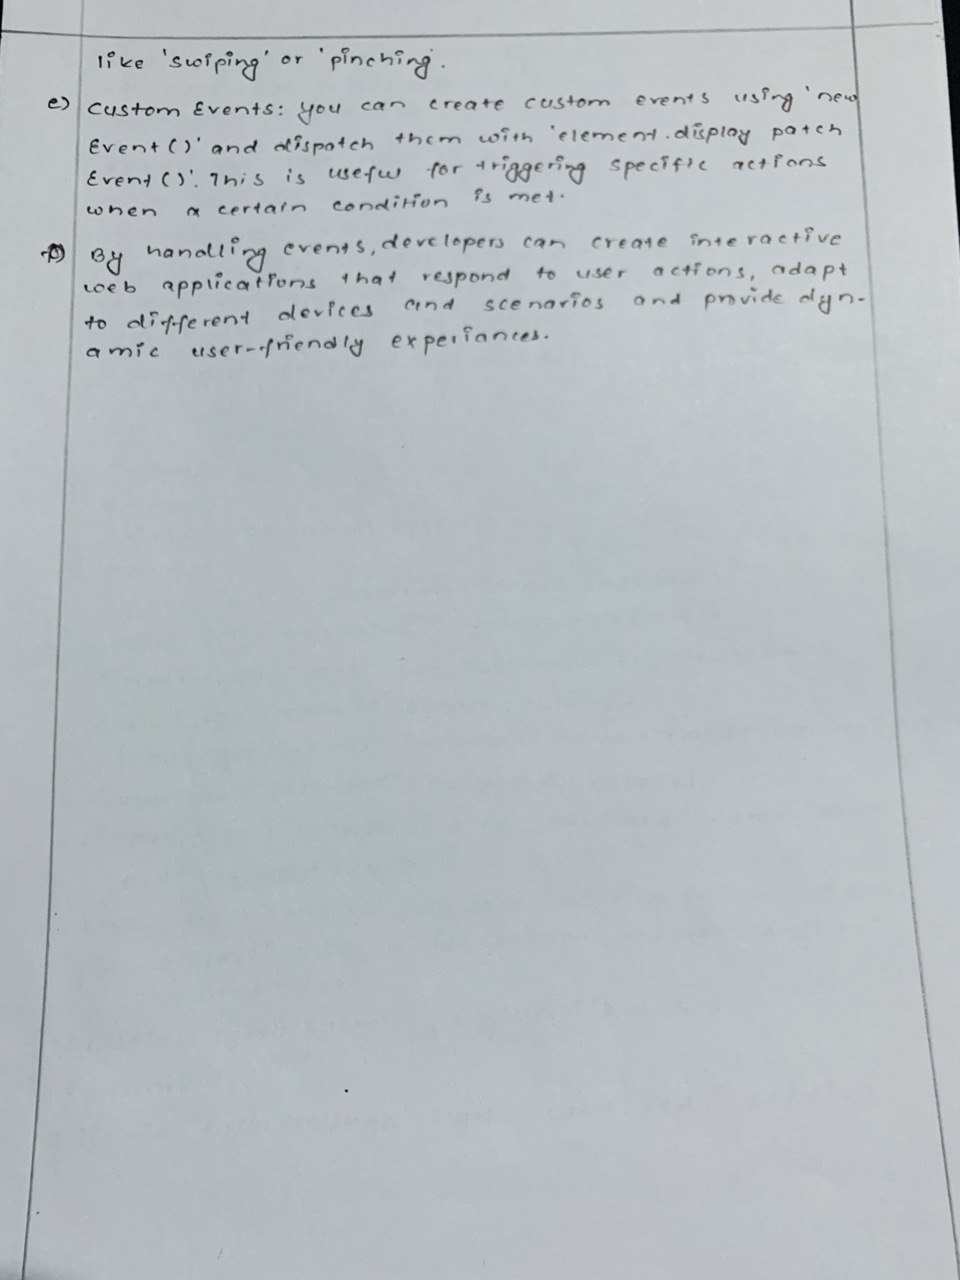 like 'swiping' or 'pinching'.
e) Custom Events: you can create custom events using 'new
Event()' and dispatch them with 'element.display patch
Event()'. This is useful for triggering specific actions
when a certain condition is met.
f) By handling events, developers can create interactive
web applications that respond to user actions, adapt
to different devices and scenarios and provide dyn-
amic user-friendly experiances.